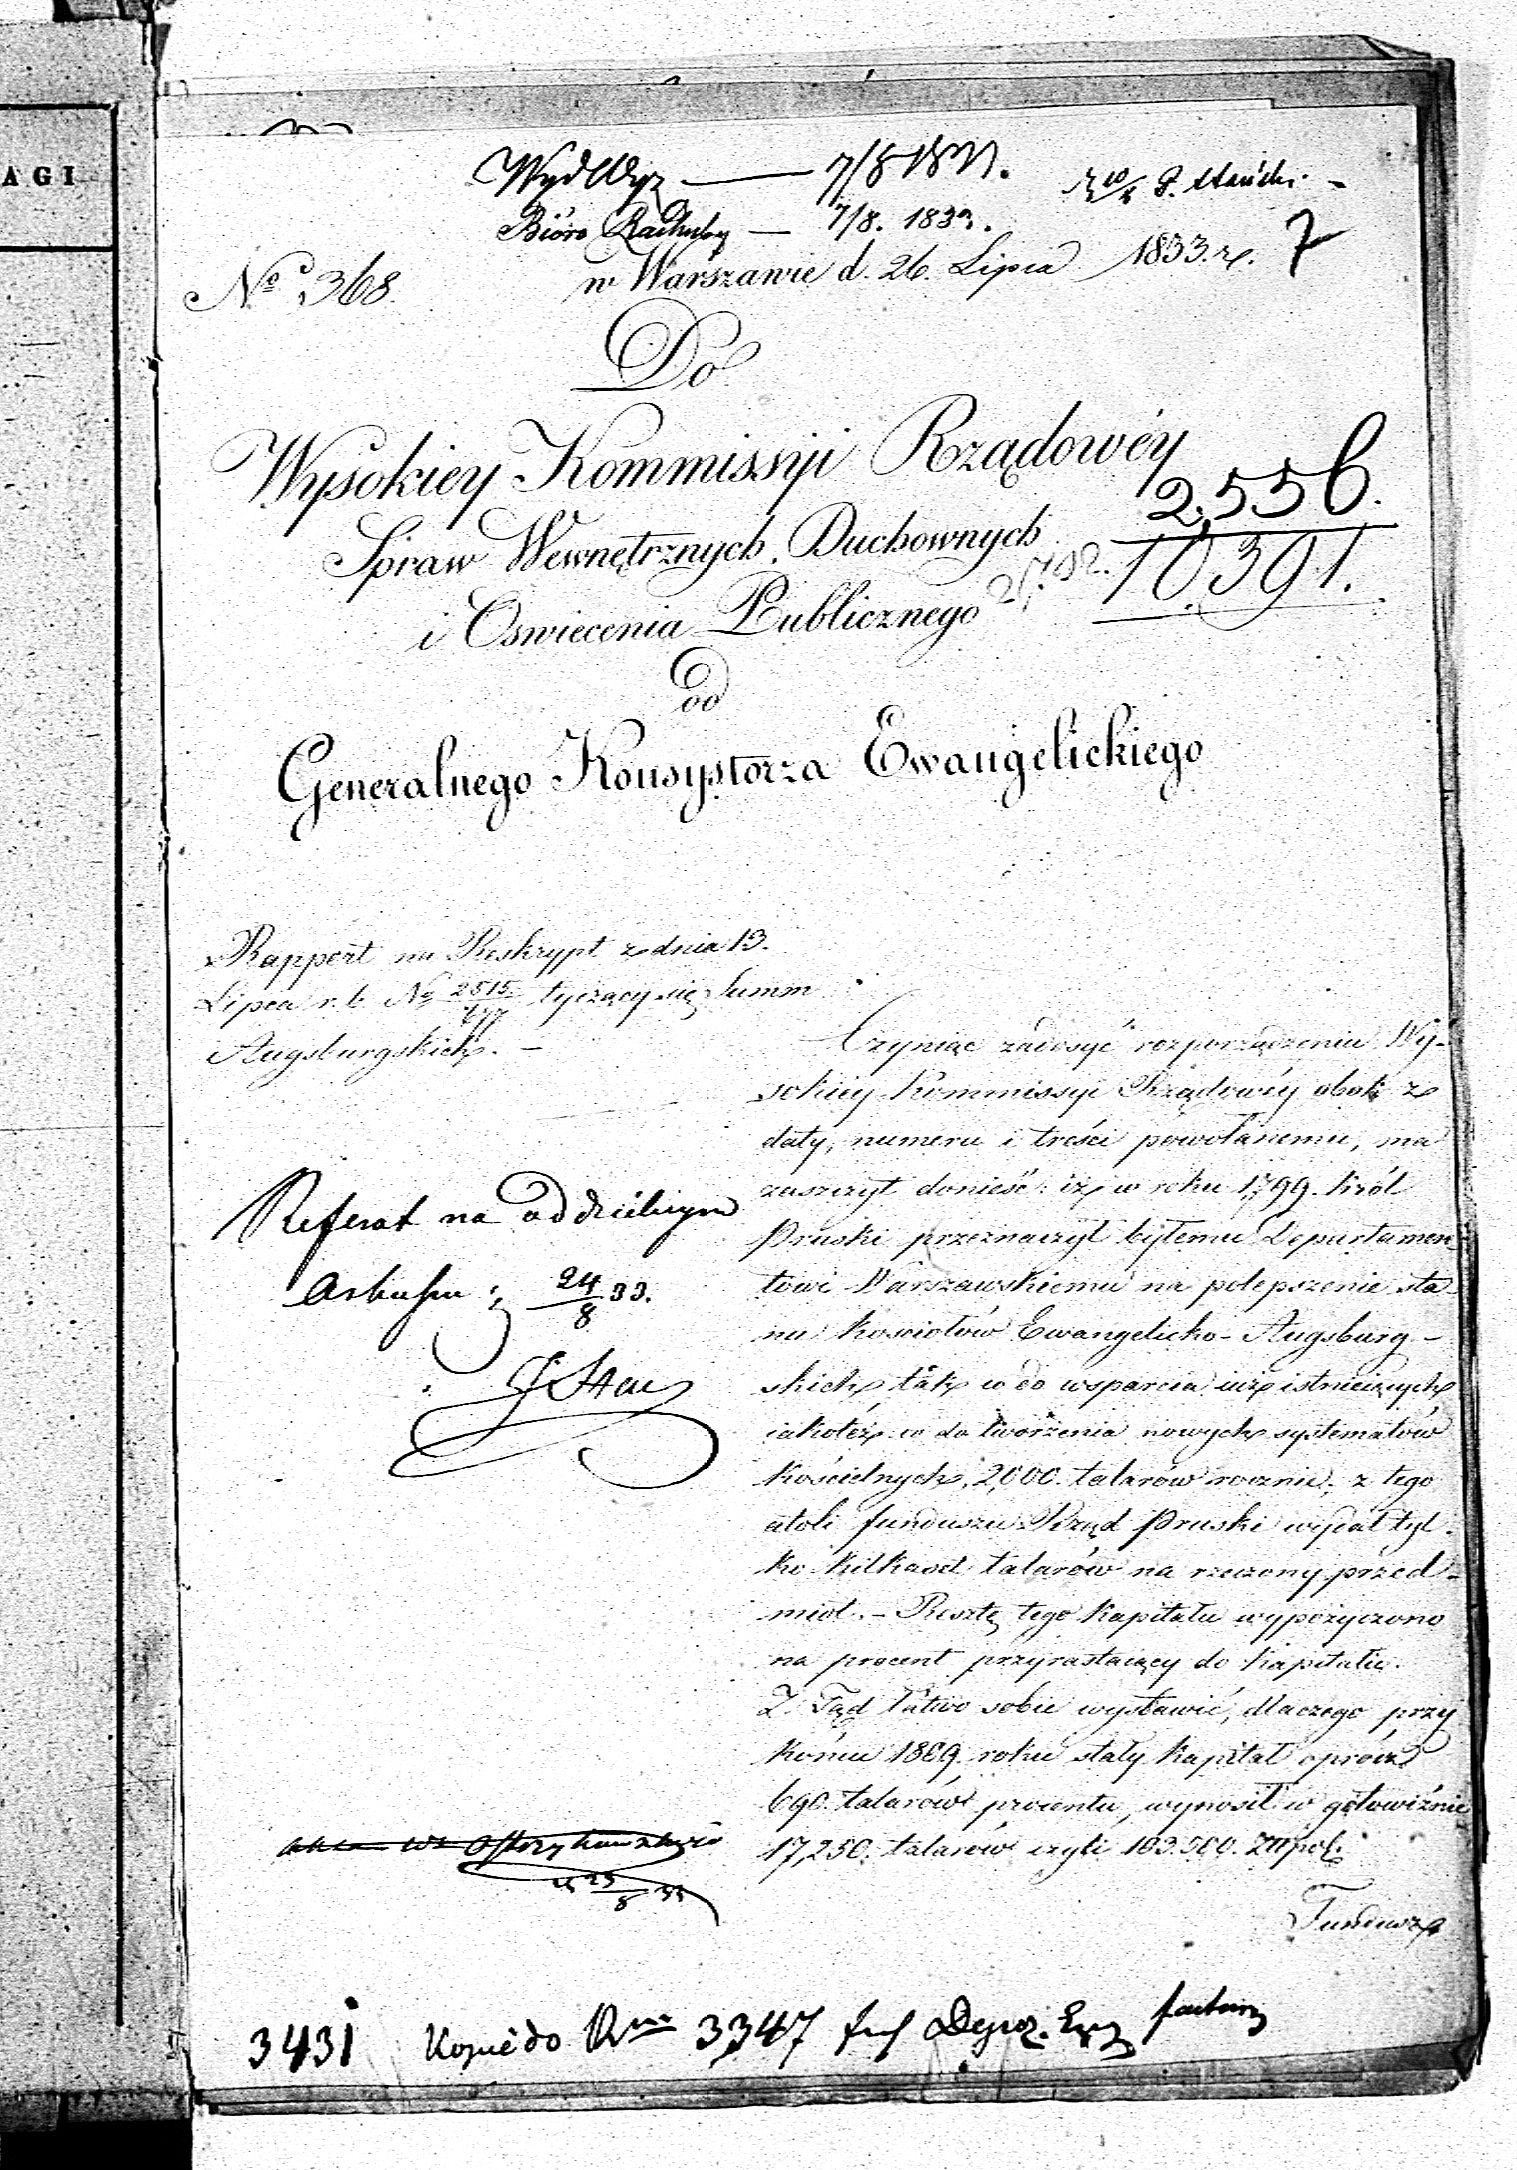 AGI
Wyd Wyz — 7/8 1833.
Bióro Rachuby — 7/8. 1833.
7
w Warszawie d. 26. Lipca 1833. r.
No 368.
Do
Wysokiey Kommissyi Rządowéy
2,556.
Spraw Wewnętrznych, Duchownych
10391.
i Oswiecenia Publicznego
od
Generalnego Konsystorza Ewangelickiego
Rapport na Reskrypt z dnia 13.
Lipca r. b. No 2515 tyczący się Summ
Augsburgskich. —
Czyniąc zadosyć rozporządzeniu Wy-
sokiey Kommissyi Rządowéy obok z
daty, numeru i treści powołanemu, ma
zaszczyt donieść: iż w roku 1799. Król
Pruski przeznaczył byłemu Departamen-
towi Warszawskiemu na polepszenie sta-
nu Kościołów Ewangelicko-Augsburg-
skich tak co do wsparcia iuż istnieiących
iakoteż co do tworzenia nowych systematów
Kościelnych, 2,000. talarów rocznie; z tego
atoli funduszu Rząd Pruski wydał tyl-
ko kilkaset talarów na rzeczony przed-
miot. — Resztę tego Kapitału wypożyczono
na procent przyrastaiący do Kapitału.
Z Tąd łatwo sobie wystawić, dlaczego przy
końcu 1809. roku stały Kapitał oprócz
690. talarów procentu, wynosił w gotowiźnie
17,250. talarów czyli 103.500. Złłpol.
Fundusz
Referat na oddzielnym
Arkuszu 24/8 33.
25/8 33
3431 Kopię do 3347